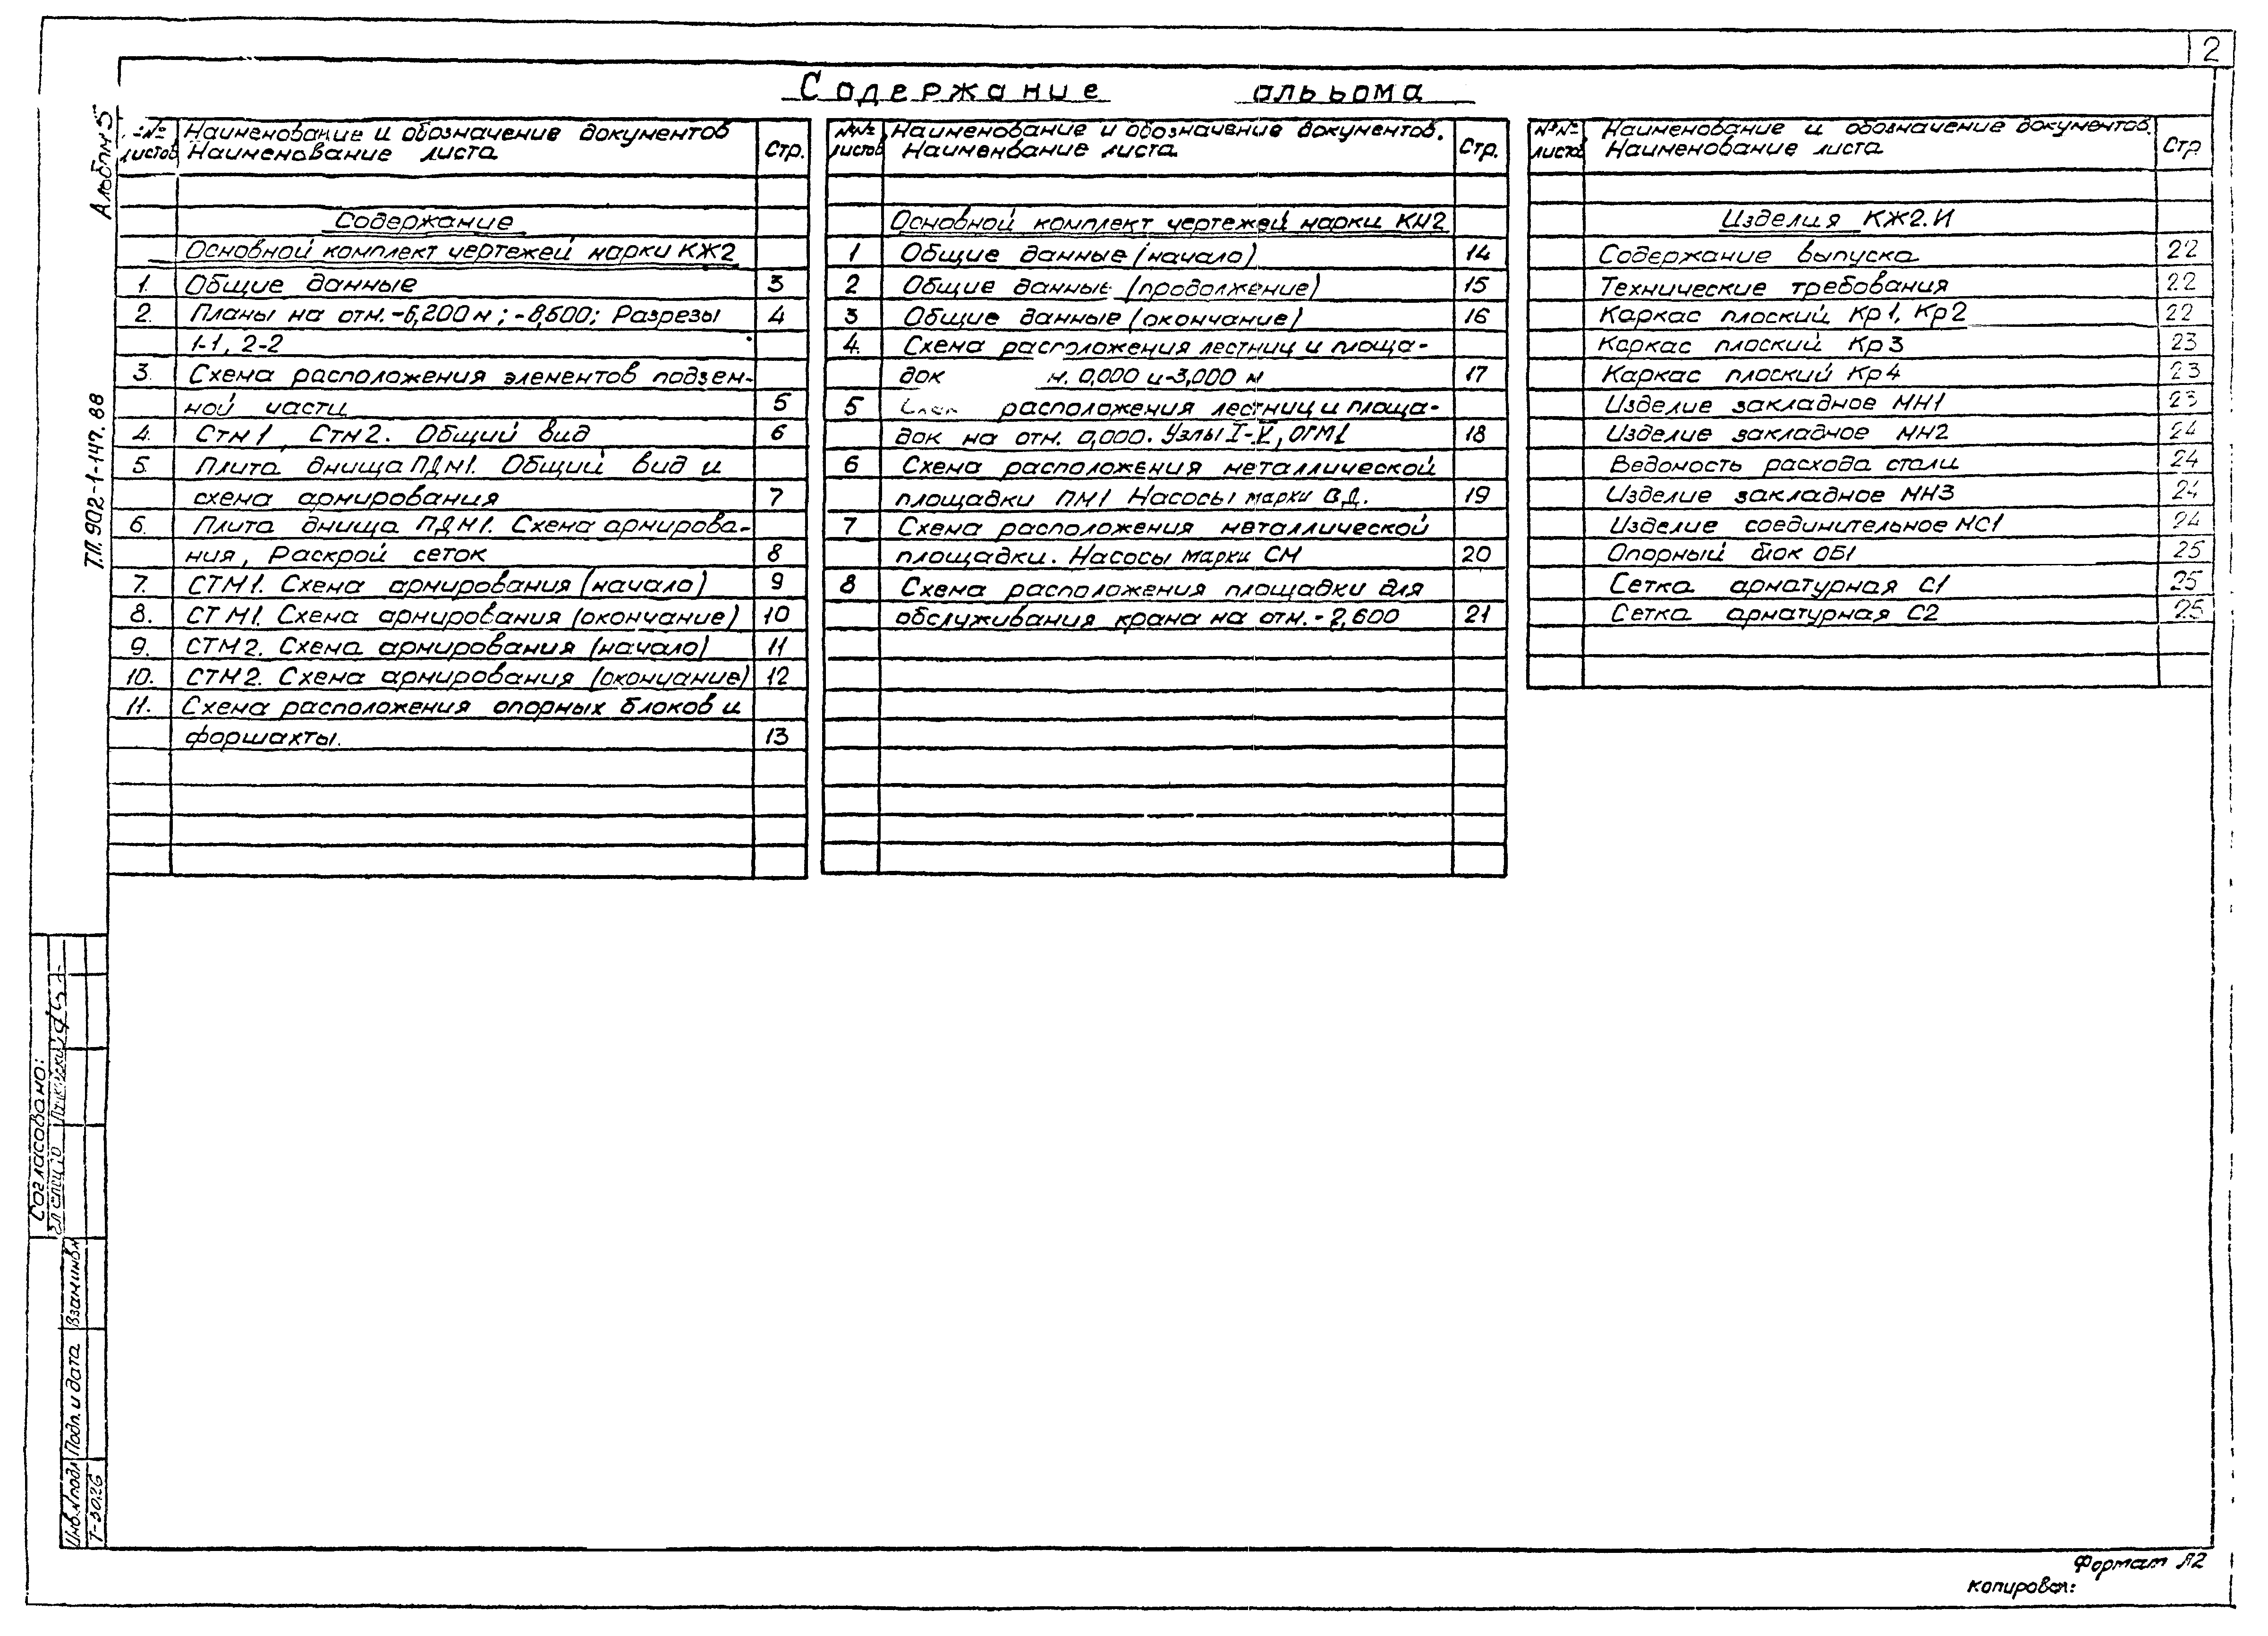 2
Содержание альбома
Альбом 5
Т.П. 902-1-147.88
№№ листов
Наименование и обозначение документов
Наименование листа
Стр.
Содержание
Основной комплект чертежей марки КЖ2
1. Общие данные 3
2. Планы на отм.-6,200м; -8,600; Разрезы 4
1-1, 2-2
3. Схема расположения элементов подзем-
ной части 5
4. Стм1, Стм2. Общий вид 6
5. Плита днища ПДМ1. Общий вид и
схема армирования 7
6. Плита днища ПДМ1. Схема армирова-
ния, Раскрой сеток 8
7. СТМ1. Схема армирования (начало) 9
8. СТМ1. Схема армирования (окончание) 10
9. СТМ2. Схема армирования (начало) 11
10. СТМ2. Схема армирования (окончание) 12
11. Схема расположения опорных блоков и
форшахты. 13
№№ листов
Наименование и обозначение документов.
Наименование листа
Стр.
Основной комплект чертежей марки КМ2
1 Общие данные (начало) 14
2 Общие данные (продолжение) 15
3 Общие данные (окончание) 16
4. Схема расположения лестниц и площа-
док м. 0,000 и-3,000 м 17
5 расположения лестниц и площа-
док на отм. 0,000. Узлы I-V, ОГМ1 18
6 Схема расположения металлической
площадки ПМ1 Насосы марки ВД. 19
7 Схема расположения металлической
площадки. Насосы марки СМ 20
8 Схема расположения площадки для
обслуживания крана на отм.-2,600 21
№№ листа
Наименование и обозначение документов.
Наименование листа
Стр
Изделия КЖ2.И
Содержание выпуска 22
Технические требования 22
Каркас плоский Кр1, Кр2 22
Каркас плоский Кр3 23
Каркас плоский Кр4 23
Изделие закладное МН1 23
Изделие закладное МН2 24
Ведомость расхода стали 24
Изделие закладное МН3 24
Изделие соединительное МС1 24
Опорный блок ОБ1 25
Сетка арматурная С1 25
Сетка арматурная С2 25
Согласовано:
Взам.инв.№
Подп. и дата
Инв.№подл
Т-3026
Формат А2
Копировал: